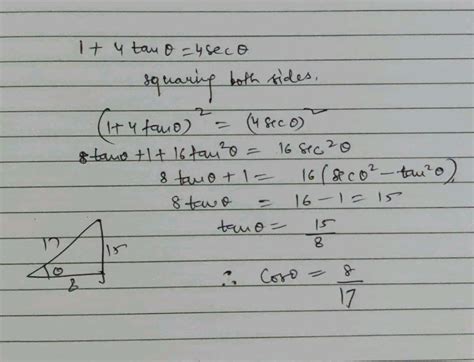 1 + 4 tan θ = 4 sec θ
squaring both sides.
(1+4 tanθ)² = (4 secθ)²
8 tanθ + 1 + 16 tan²θ = 16 sec²θ
8 tanθ + 1 = 16 (secθ² - tan²θ)
8 tanθ = 16 - 1 = 15
tanθ = 15/8
17
15
θ
8
∴ Cosθ = 8/17